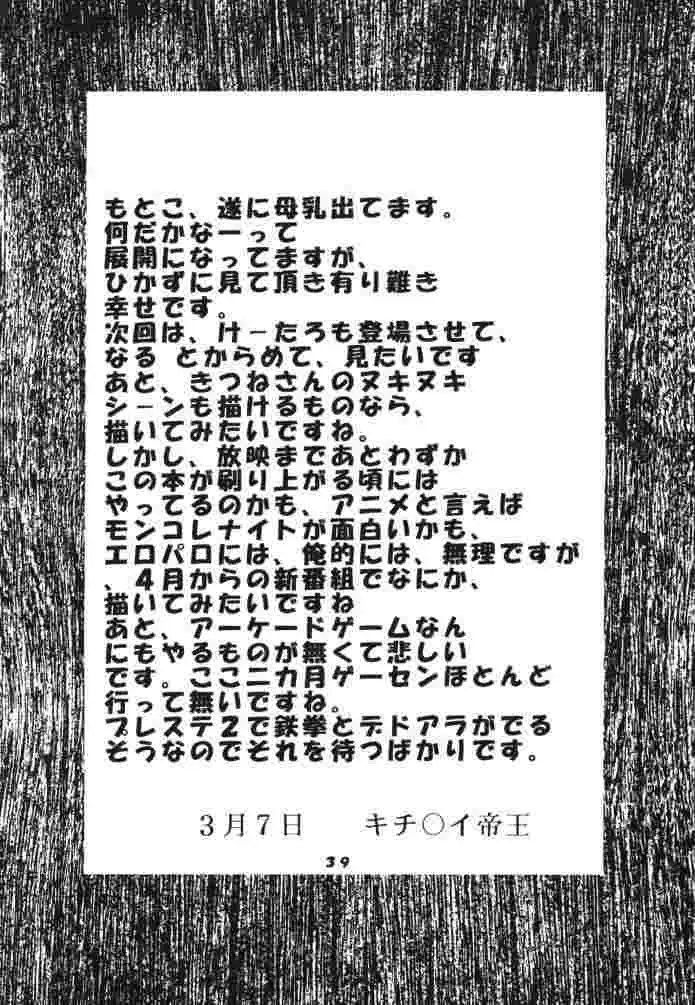 もとこ、遂に母乳出てます。
何だかなーって
展開になってますが、
ひかずに見て頂き有り難き
幸せです。
次回は、けーたろも登場させて、
なる とからめて、見たいです
あと、きつねさんのヌキヌキ
シーンも描けるものなら、
描いてみたいですね。
しかし、放映まであとわずか
この本が刷り上がる頃には
やってるのかも、アニメと言えば
モンコレナイトが面白いかも、
エロパロには、俺的には、無理ですが
、4月からの新番組でなにか、
描いてみたいですね
あと、アーケードゲームなん
にもやるものが無くて悲しい
です。ここ二カ月ゲーセンほとんど
行って無いですね。
プレステ2で鉄拳とデドアラがでる
そうなのでそれを待つばかりです。
3月7日　キチ○イ帝王
39